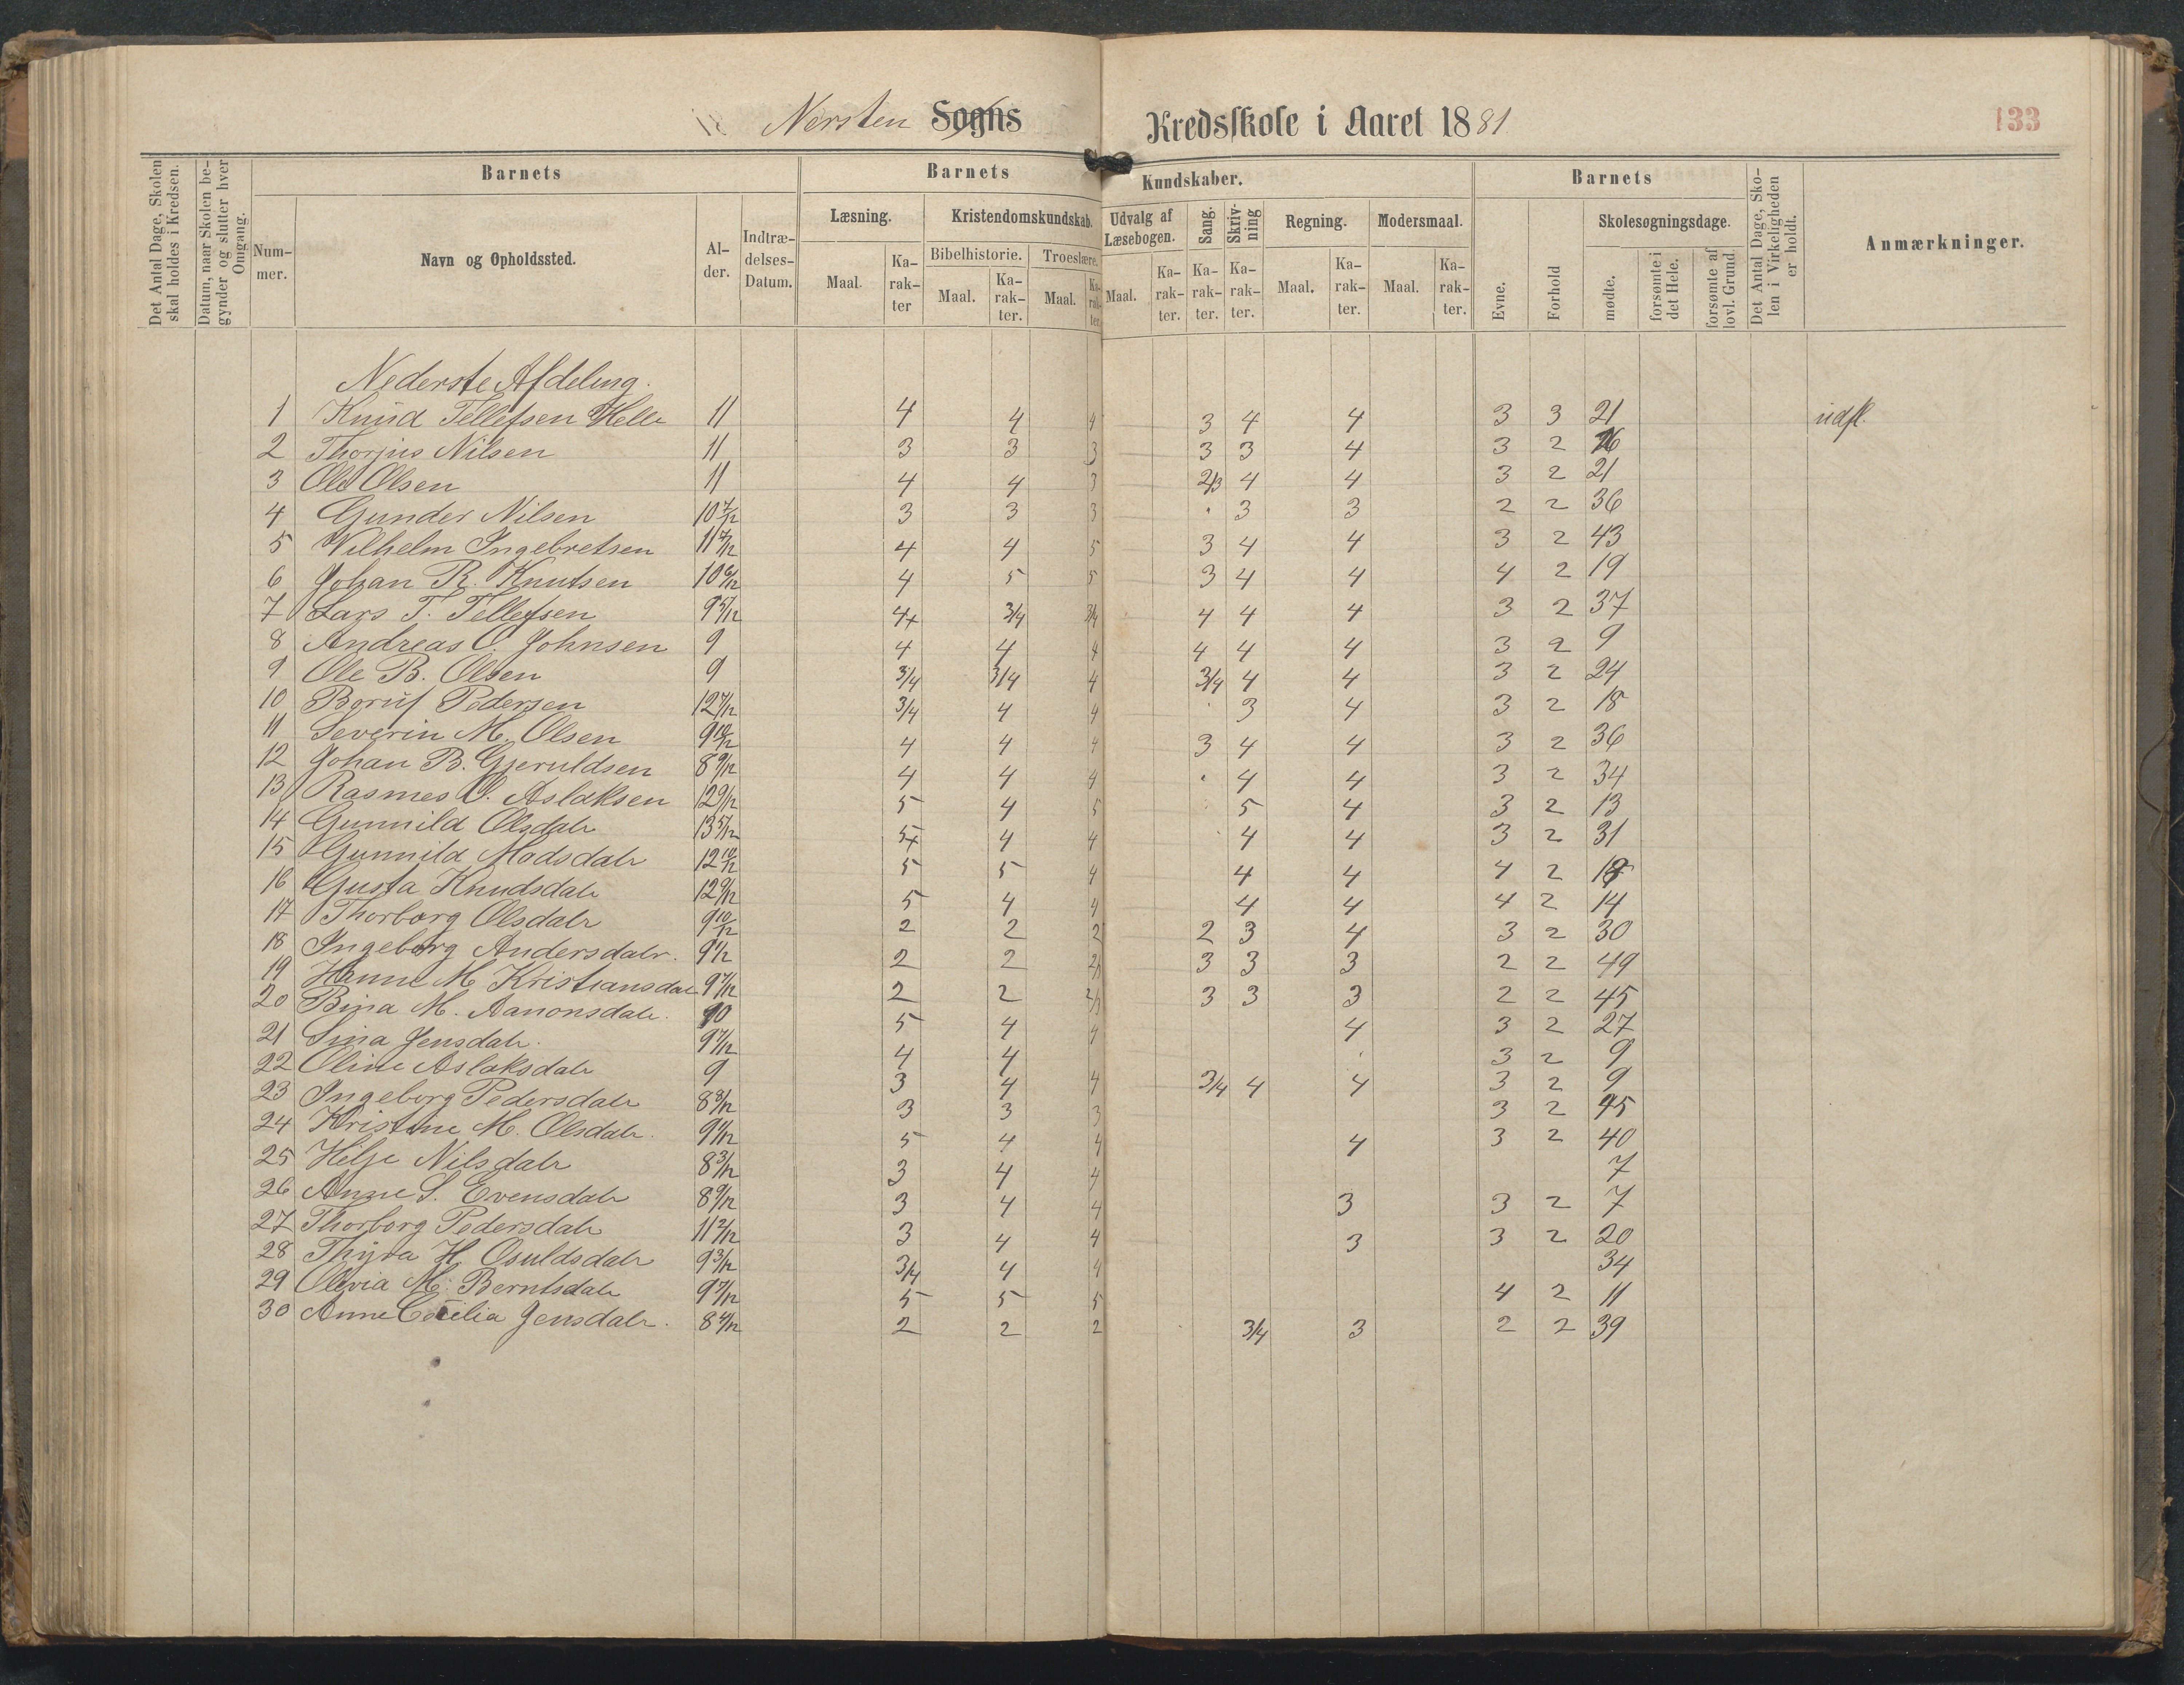 Nersten Sogns Kredsskole i Aaret 1881
133
Det Antal Dage, Skolen skal holdes i Kredsen.
Datum, naar Skolen begynder og slutter hver Omgang.
Barnets
Nummer.
Navn og Opholdssted.
Alder.
Indtrædelses-Datum.
Barnets Kundskaber.
Læsning.
Maal.
Karakter
Kristendomskundskab.
Bibelhistorie.
Maal.
Karakter.
Troeslære.
Maal.
Karakter.
Udvalg af Læsebogen.
Maal.
Karakter.
Sang.
Karakter.
Skrivning
Karakter.
Regning.
Maal.
Karakter.
Modersmaal.
Maal.
Karakter.
Barnets
Evne.
Forhold
Skolesøgningsdage.
mødte.
forsømte i det Hele.
forsømte af lovl. Grund.
Det Antal Dage, Skolen i Virkeligheden er holdt.
Anmærkninger.
Nederste Afdeling.
1 Knud Tellefsen Helle 11 4 4 4 3 4 4 3 3 21 udfl.
2 Thorjus Nilsen 11 3 3 3 3 3 4 3 2
3 Ole Olsen 11 4 4 3 2/3 4 4 3 2 21
4 Gunder Nilsen 10 7/12 3 3 3 3 3 2 2 36
5 Vilhelm Ingebretsen 11 7/12 4 4 5 3 4 4 3 2 43
6 Johan R. Knutsen 10 6/12 4 5 5 3 4 4 4 2 19
7 Lars T. Tellefsen 9 5/12 4+ 3/4 3/4 4 4 4 3 2 37
8 Andreas O. Johnsen 9 4 4 4 4 4 4 3 2 9
9 Ole B. Olsen 9 3/4 3/4 4 3/4 4 4 3 2 24
10 Boruf Pedersen 12 7/12 3/4 4 4 3 4 3 2 18
11 Severin M. Olsen 9 10/12 4 4 4 3 4 4 3 2 36
12 Johan B. Gjeruldsen 8 9/12 4 4 4 4 4 3 2 34
13 Rasmes O. Aslaksen 12 9/12 5 4 5 5 4 3 2 13
14 Gunnild Olsdatr 13 5/12 5+ 4 4 4 4 3 2 31
15 Gunnild Madsdatr 12 10/12 5 5 4 4 4 4 2
16 Gusta Knudsdatr 12 9/12 5 4 4 4 4 4 2 14
17 Thorborg Olsdatr 9 10/12 2 2 2 2 3 4 3 2 30
18 Ingeborg Andersdatr. 9 1/12 2 2 2/3 3 3 3 2 2 49
19 Hanne M. Kristiansdatr 9 7/12 2 2 2/3 3 3 3 2 2 45
20 Bina M. Aanonsdatr. 10 5 4 4 4 3 2 27
21 Sina Jensdatr. 9 7/12 4 4 3 2 9
22 Oline Aslaksdatr 9 3 4 4 3/4 4 4 3 2 9
23 Ingeborg Pedersdatr 8 8/12 3 3 3 3 2 45
24 Kristine M. Olsdatr. 9 1/12 5 4 4 4 3 2 40
25 Helje Nilsdatr 8 3/12 3 4 4 7
26 Anne S. Evensdatr 8 9/12 3 4 4 3 3 2 7
27 Thorborg Pedersdatr 11 2/12 3 4 4 3 3 2 20
28 Thyra H. Osuldsdatr 9 3/12 3/4 4 4 34
29 Olevia M. Berntsdatr 9 7/12 5 5 5 4 2 11
30 Anne Cecilia Jensdatr. 8 4/12 2 2 2 3/4 3 2 2 39